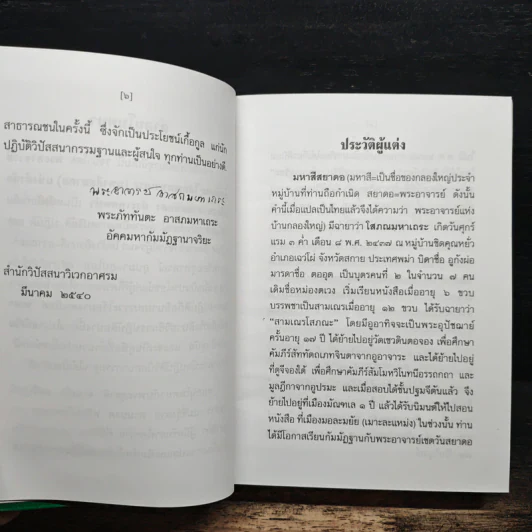 [๖]
สาธารณชนในครั้งนี้ ซึ่งจักเป็นประโยชน์เกื้อกูล แก่นัก
ปฏิบัติวิปัสสนากรรมฐานและผู้สนใจ ทุกท่านเป็นอย่างดี.
พระภัททันตะ อาสภมหาเถระ
อัคคมหากัมมัฏฐานาจริยะ
สำนักวิปัสสนาวิเวกอาศรม
มีนาคม ๒๕๔๐
ประวัติผู้แต่ง
มหาสีสยาดอ (มหาสี=เป็นชื่อของกลองใหญ่ประจำ
หมู่บ้านที่ท่านถือกำเนิด สยาดอ=พระอาจารย์ ดังนั้น
คำนี้เมื่อแปลเป็นไทยแล้วจึงได้ความว่า พระอาจารย์แห่ง
บ้านกลองใหญ่) มีฉายาว่า โสภณมหาเถระ เกิดวันศุกร์
แรม ๓ ค่ำ เดือน ๘ พ.ศ. ๒๔๔๗ ณ หมู่บ้านชิตคุณหยัว
อำเภอเฉวโผ่ จังหวัดสกาย ประเทศพม่า บิดาชื่อ อูกังผ่อ
มารดาชื่อ ดออูต เป็นบุตรคนที่ ๒ ในจำนวน ๗ คน
เดิมชื่อหม่องตเวง เริ่มเรียนหนังสือเมื่ออายุ ๖ ขวบ
บรรพชาเป็นสามเณรเมื่ออายุ ๑๒ ขวบ ได้รับฉายาว่า
"สามเณรโสภณะ" โดยมีอูอาทิจจะเป็นพระอุปัชฌาย์
ครั้นอายุ ๑๗ ปี ได้ย้ายไปอยู่วัดเชวดินตอจอง เพื่อศึกษา
คัมภีร์สัททัตถเภทจินดาจากอูอาจาระ และได้ย้ายไปอยู่
ที่ตูจีจองใต้ เพื่อศึกษาคัมภีร์สัมโมหวิโนทนีอรรถกถา และ
มูลฎีกาจากอูปรมะ และเมื่อสอบได้ชั้นปฐมจีตันแล้ว จึง
ย้ายไปอยู่ที่เมืองมัณฑเล ๑ ปี แล้วได้รับนิมนต์ให้ไปสอน
หนังสือ ที่เมืองมอละมยัย (เมาะละแหม่ง) ในช่วงนั้น ท่าน
ได้มีโอกาสเรียนกัมมัฏฐานกับพระอาจารย์เชตวันสยาดอ